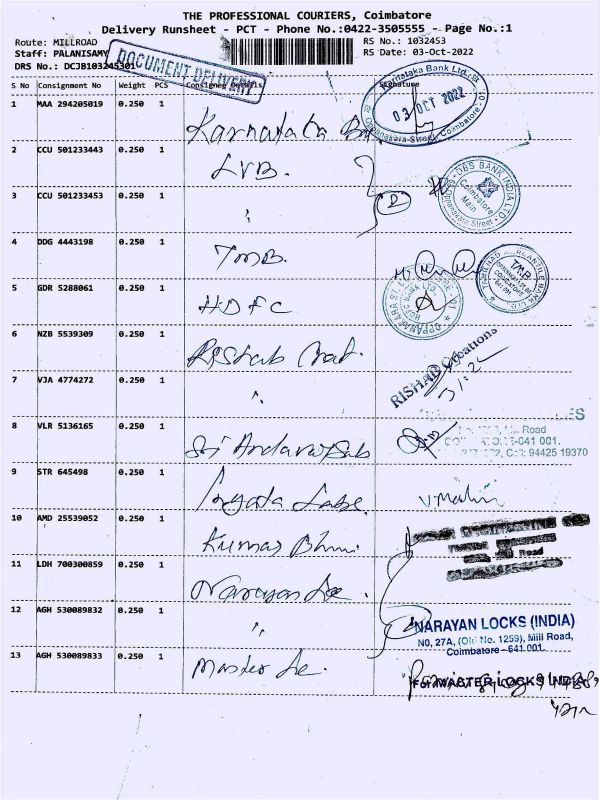 THE PROFESSIONAL COURIERS, Coimbatore
Delivery Runsheet - PCT - Phone No.:0422-3505555 - Page No.:1
Route: MILLROAD
RS No.: 1032453
Staff: PALANISAMY
RS Date: 03-Oct-2022
DRS No.: DCJB103245301
DOCUMENT DELIVERY
S No Consignment No Weight PCS Consignee Details Signature
1 MAA 294205019 0.250 1 Karnataka
Karnataka Bank Ltd.,
03 OCT 2022
Oppanakara Street, Coimbatore
2 CCU 501233443 0.250 1 LVB.
3 CCU 501233453 0.250 1 "
DBS BANK INDIA LTD
Coimbatore Main
Oppanakara Street
4 DDG 4443198 0.250 1 TMB.
TAMILNAD MERCANTILE BANK LTD.
TMB
5 GDR 5288061 0.250 1 HDFC
OPPANAKARA ST.
6 NZB 5539309 0.250 1
RISHAB Creations
7 VJA 4774272 0.250 1 "
8 VLR 5136165 0.250 1 Sri
Mill Road
641 001.
Cell: 94425 19370
9 STR 645498 0.250 1
10 AMD 25539052 0.250 1 Kumar
Road
11 LDH 700300859 0.250 1 Narayan
12 AGH 530089832 0.250 1 "
NARAYAN LOCKS (INDIA)
NO, 27A, (Old No. 1259), Mill Road,
Coimbatore - 641 001.
13 AGH 530089833 0.250 1 Master
For MASTER LOCKS INDIA